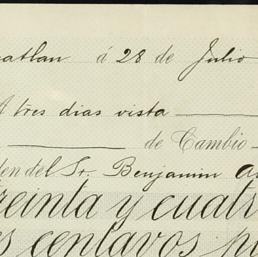 atlan á 28 de Julio
A tres dias vista
de Cambio
den del Sr. Benjamin As
reinta y cuatr
es centavos p